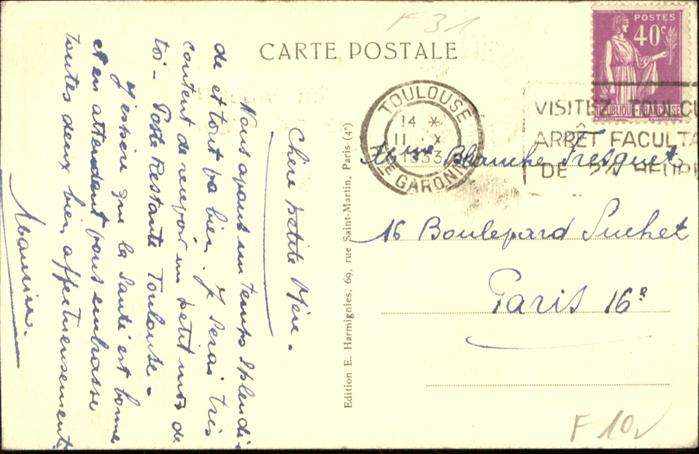 F 31
CARTE POSTALE
POSTES
40c
REPUBLIQUE FRANÇAISE
TOULOUSE
14 *
11 X
1933
HTE GARONNE
VISITEZ TOULOU
ARRÊT FACULTA
DE 24 HEURE
Chère petite Mère.
Nous avons un temps splendi-
de et tout va bien. Je serai très
content de recevoir un petit mot de
toi - Poste Restante Toulouse -
J'espère que la santé est bonne
et en attendant vous embrasse
toutes deux bien affectueusement
Maurice.
Edition E. Harmignies, 69, rue Saint-Martin, Paris (4e)
Mme Blanche
16 Boulevard Suchet
Paris 16e
F 10